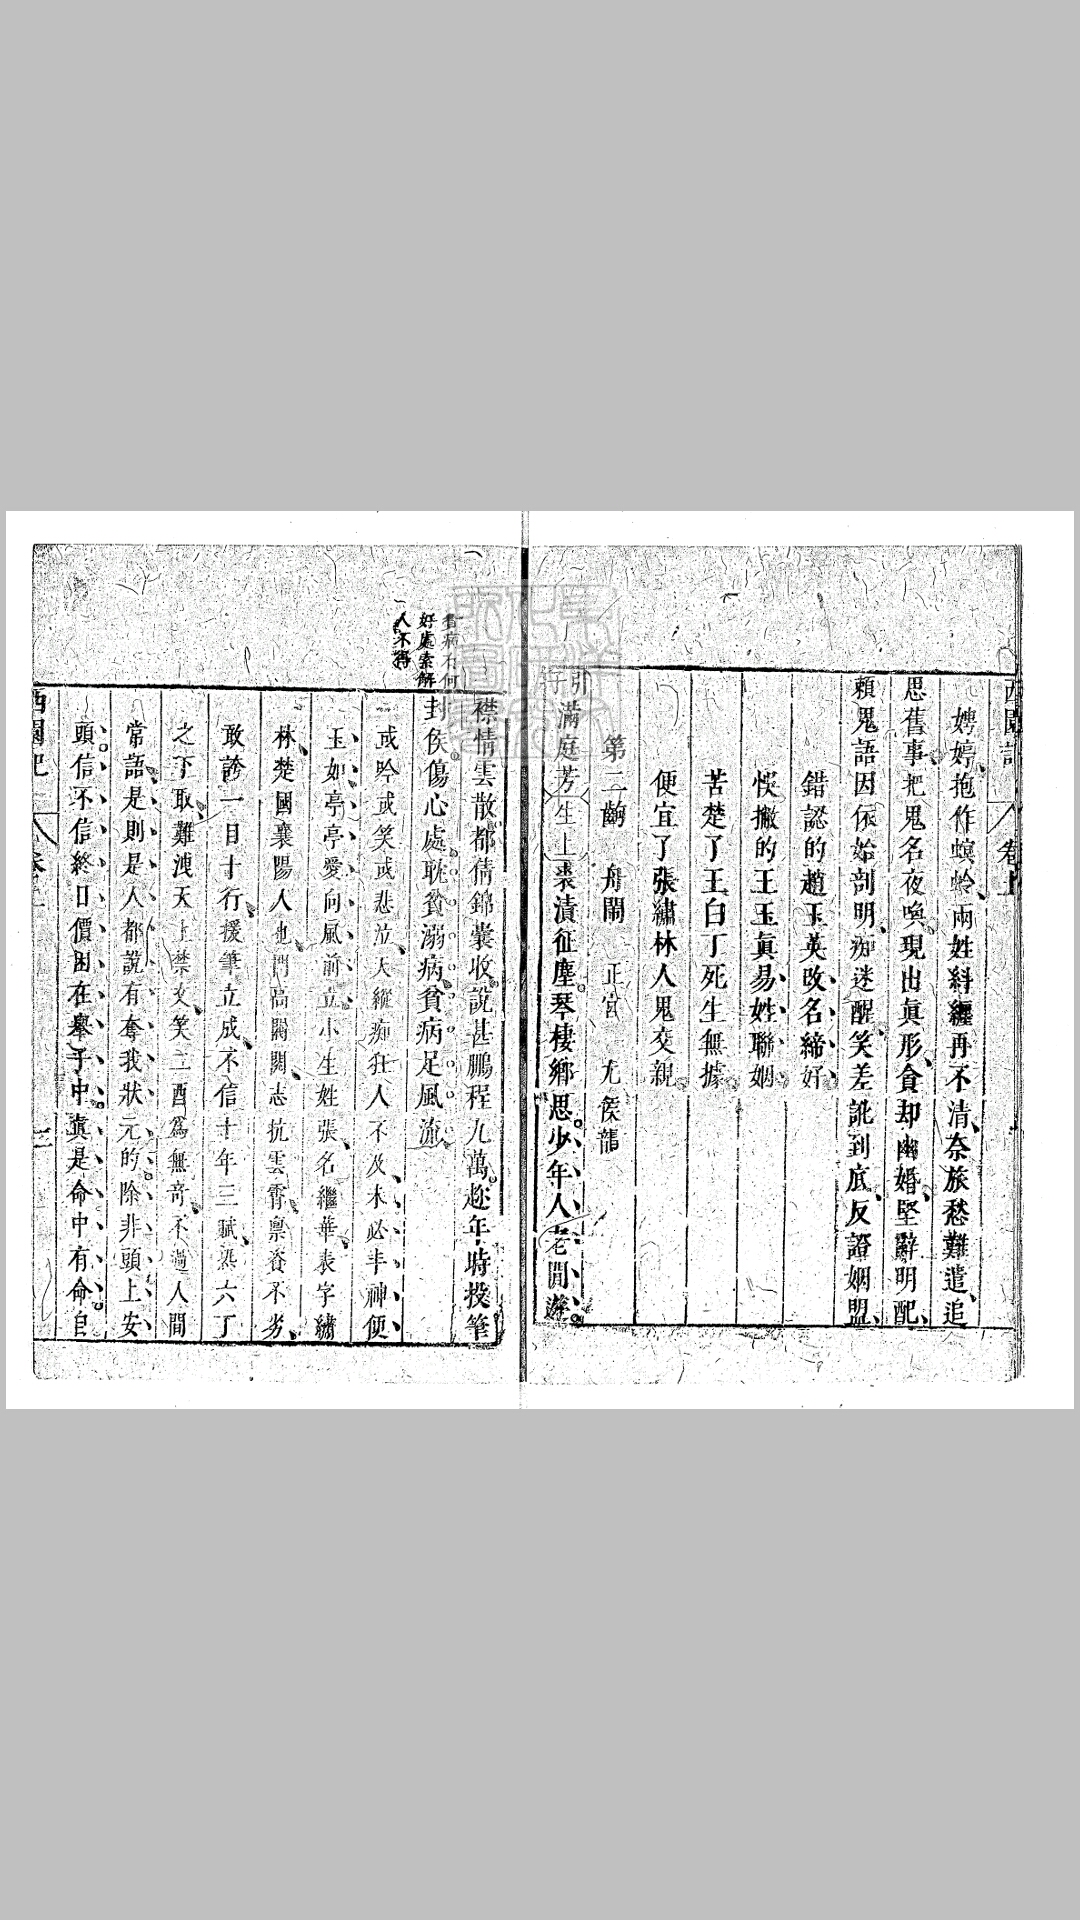 西園記 卷上
娉婷抱作螟蛉兩姓糾纏再不清奈旅愁難遣追
思舊事把鬼名夜喚現出眞形貪却幽婚堅辭明配
賴鬼語因依始剖明痴迷醒笑差訛到底反證姻盟
錯認的趙玉英改名締好
悞撇的王玉眞易姓聯姻
苦楚了王白丁死生無據
便宜了張繡林人鬼交親
第二齣 舟閙 正宮 尤侯韻
引子滿庭芳生上裘漬征塵琴棲鄉思少年人老閒遊
襟情雲散都倩錦囊收説甚鵬程九萬趂年時投筆
封侯傷心處耽貧溺病貧病足風流
好處索解
人不得
或吟或笑或悲泣大縱痴狂人不及未必丰神便
玉如亭亭愛向風前立小生姓張名繼華表字繡
林楚國襄陽人也門高閥閱志抗雲霄禀資不劣
敢誇一目十行援筆立成不信十年三賦恐六丁
之下取難洩天上禁文笑二酉爲無奇不過人間
常語是則是人都說有奪我狀元的除非頭上安
頭信不信終日價困在舉子中眞是命中有命自
西園記 卷上 三